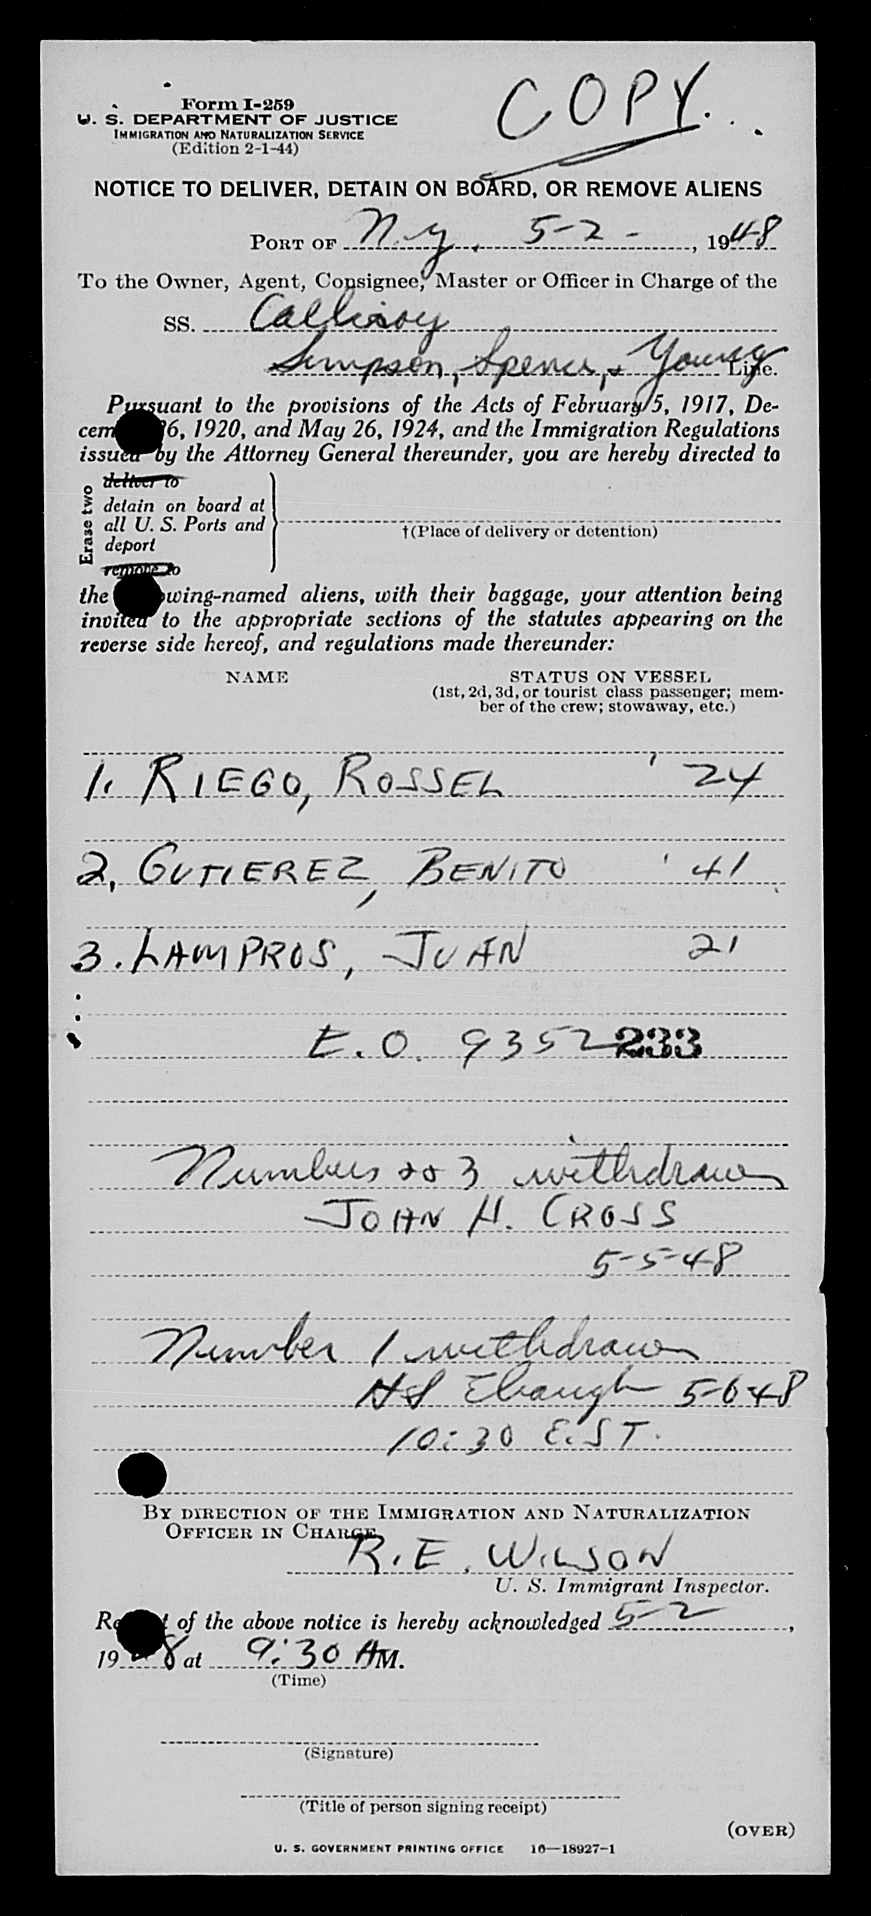 COPY.
Form I-259
U. S. DEPARTMENT OF JUSTICE
IMMIGRATION AND NATURALIZATION SERVICE
(Edition 2-1-44)
NOTICE TO DELIVER, DETAIN ON BOARD, OR REMOVE ALIENS
PORT OF N.Y., 5-2-, 1948
To the Owner, Agent, Consignee, Master or Officer in Charge of the
SS.
Simpson, Spence, & Young Line.
Pursuant to the provisions of the Acts of February 5, 1917, De-
cem 26, 1920, and May 26, 1924, and the Immigration Regulations
issued by the Attorney General thereunder, you are hereby directed to
Erase two
deliver to
detain on board at
all U. S. Ports and
deport
remove to
†(Place of delivery or detention)
the wing-named aliens, with their baggage, your attention being
invited to the appropriate sections of the statutes appearing on the
reverse side hereof, and regulations made thereunder:
NAME STATUS ON VESSEL
(1st, 2d, 3d, or tourist class passenger; mem-
ber of the crew; stowaway, etc.)
1. RIEGO, ROSSEL ' 24
2, GUTIEREZ, BENITO ' 41
3. LAMPROS, JUAN 21
E.O. 9352 233
Numbers 2 & 3 withdrawn
JOHN H. CROSS
5-5-48
Number 1 withdrawn
HS Ebaugh 5-6-48
10:30 E.S.T.
BY DIRECTION OF THE IMMIGRATION AND NATURALIZATION
OFFICER IN CHARGE
R.E. WILSON
U. S. Immigrant Inspector.
Re t of the above notice is hereby acknowledged 5-2,
1948 at 9:30 AM.
(Time)
(Signature)
(Title of person signing receipt)
(OVER)
U. S. GOVERNMENT PRINTING OFFICE 16—18927-1